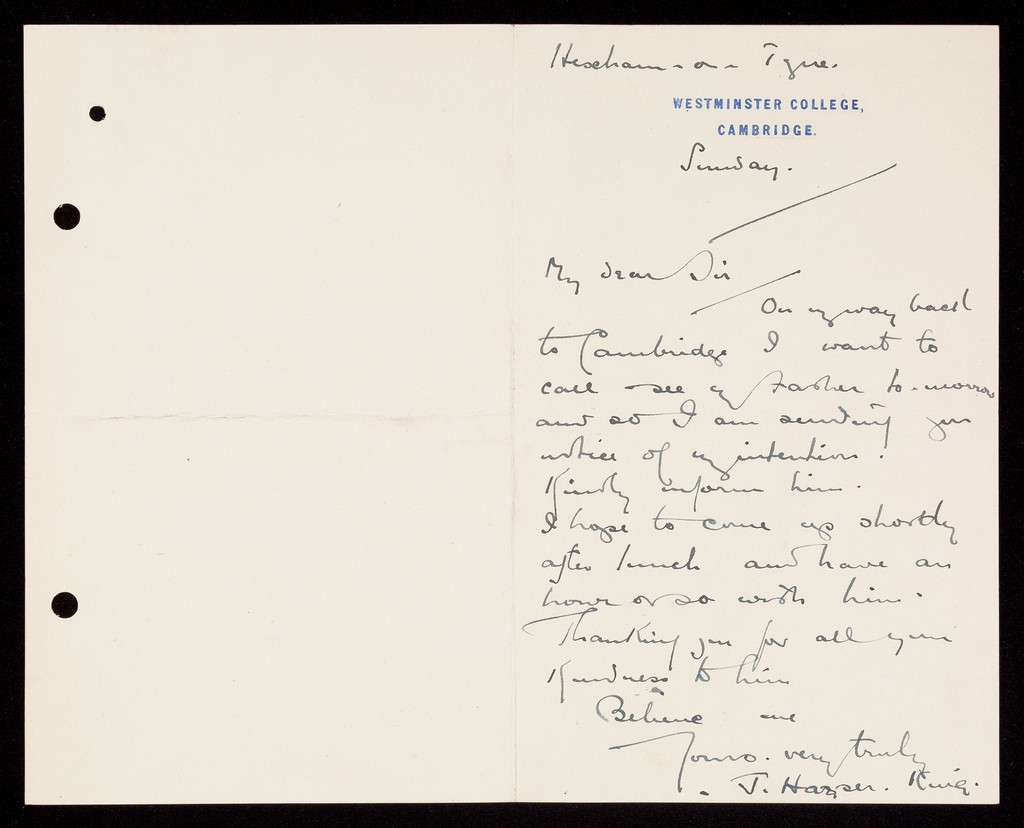 Hexham-o-Tyne.
WESTMINSTER COLLEGE,
CAMBRIDGE.
Sunday.
My dear Sir
On my way back
to Cambridge I want to
call see my Father to-morrow
and so I am sending you
notice of my intention.
Kindly inform him.
I hope to come up shortly
after lunch and have an
hour or so with him.
Thanking you for all your
Kindness to him
Believe me
Yours. very truly
J. Harper. King.